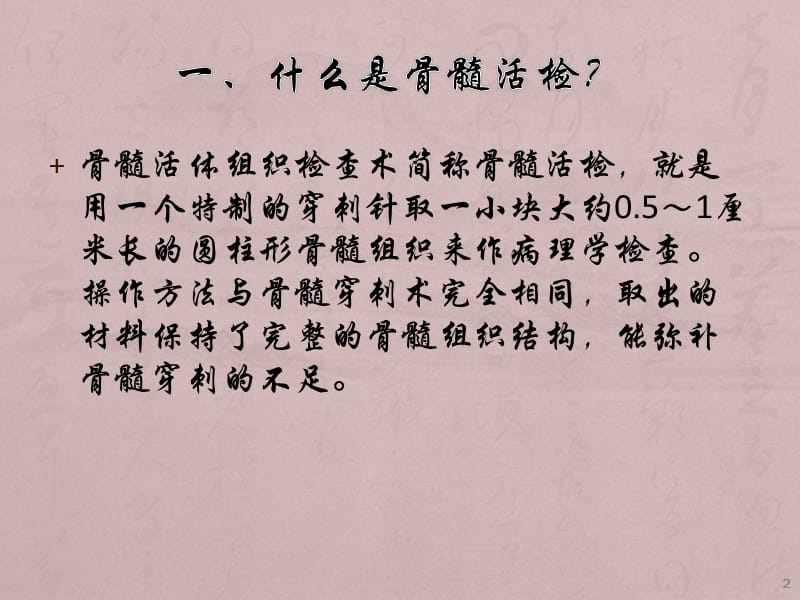 一、什么是骨髓活检？
+ 骨髓活体组织检查术简称骨髓活检，就是
用一个特制的穿刺针取一小块大约0.5～1厘
米长的圆柱形骨髓组织来作病理学检查。
操作方法与骨髓穿刺术完全相同，取出的
材料保持了完整的骨髓组织结构，能弥补
骨髓穿刺的不足。
2